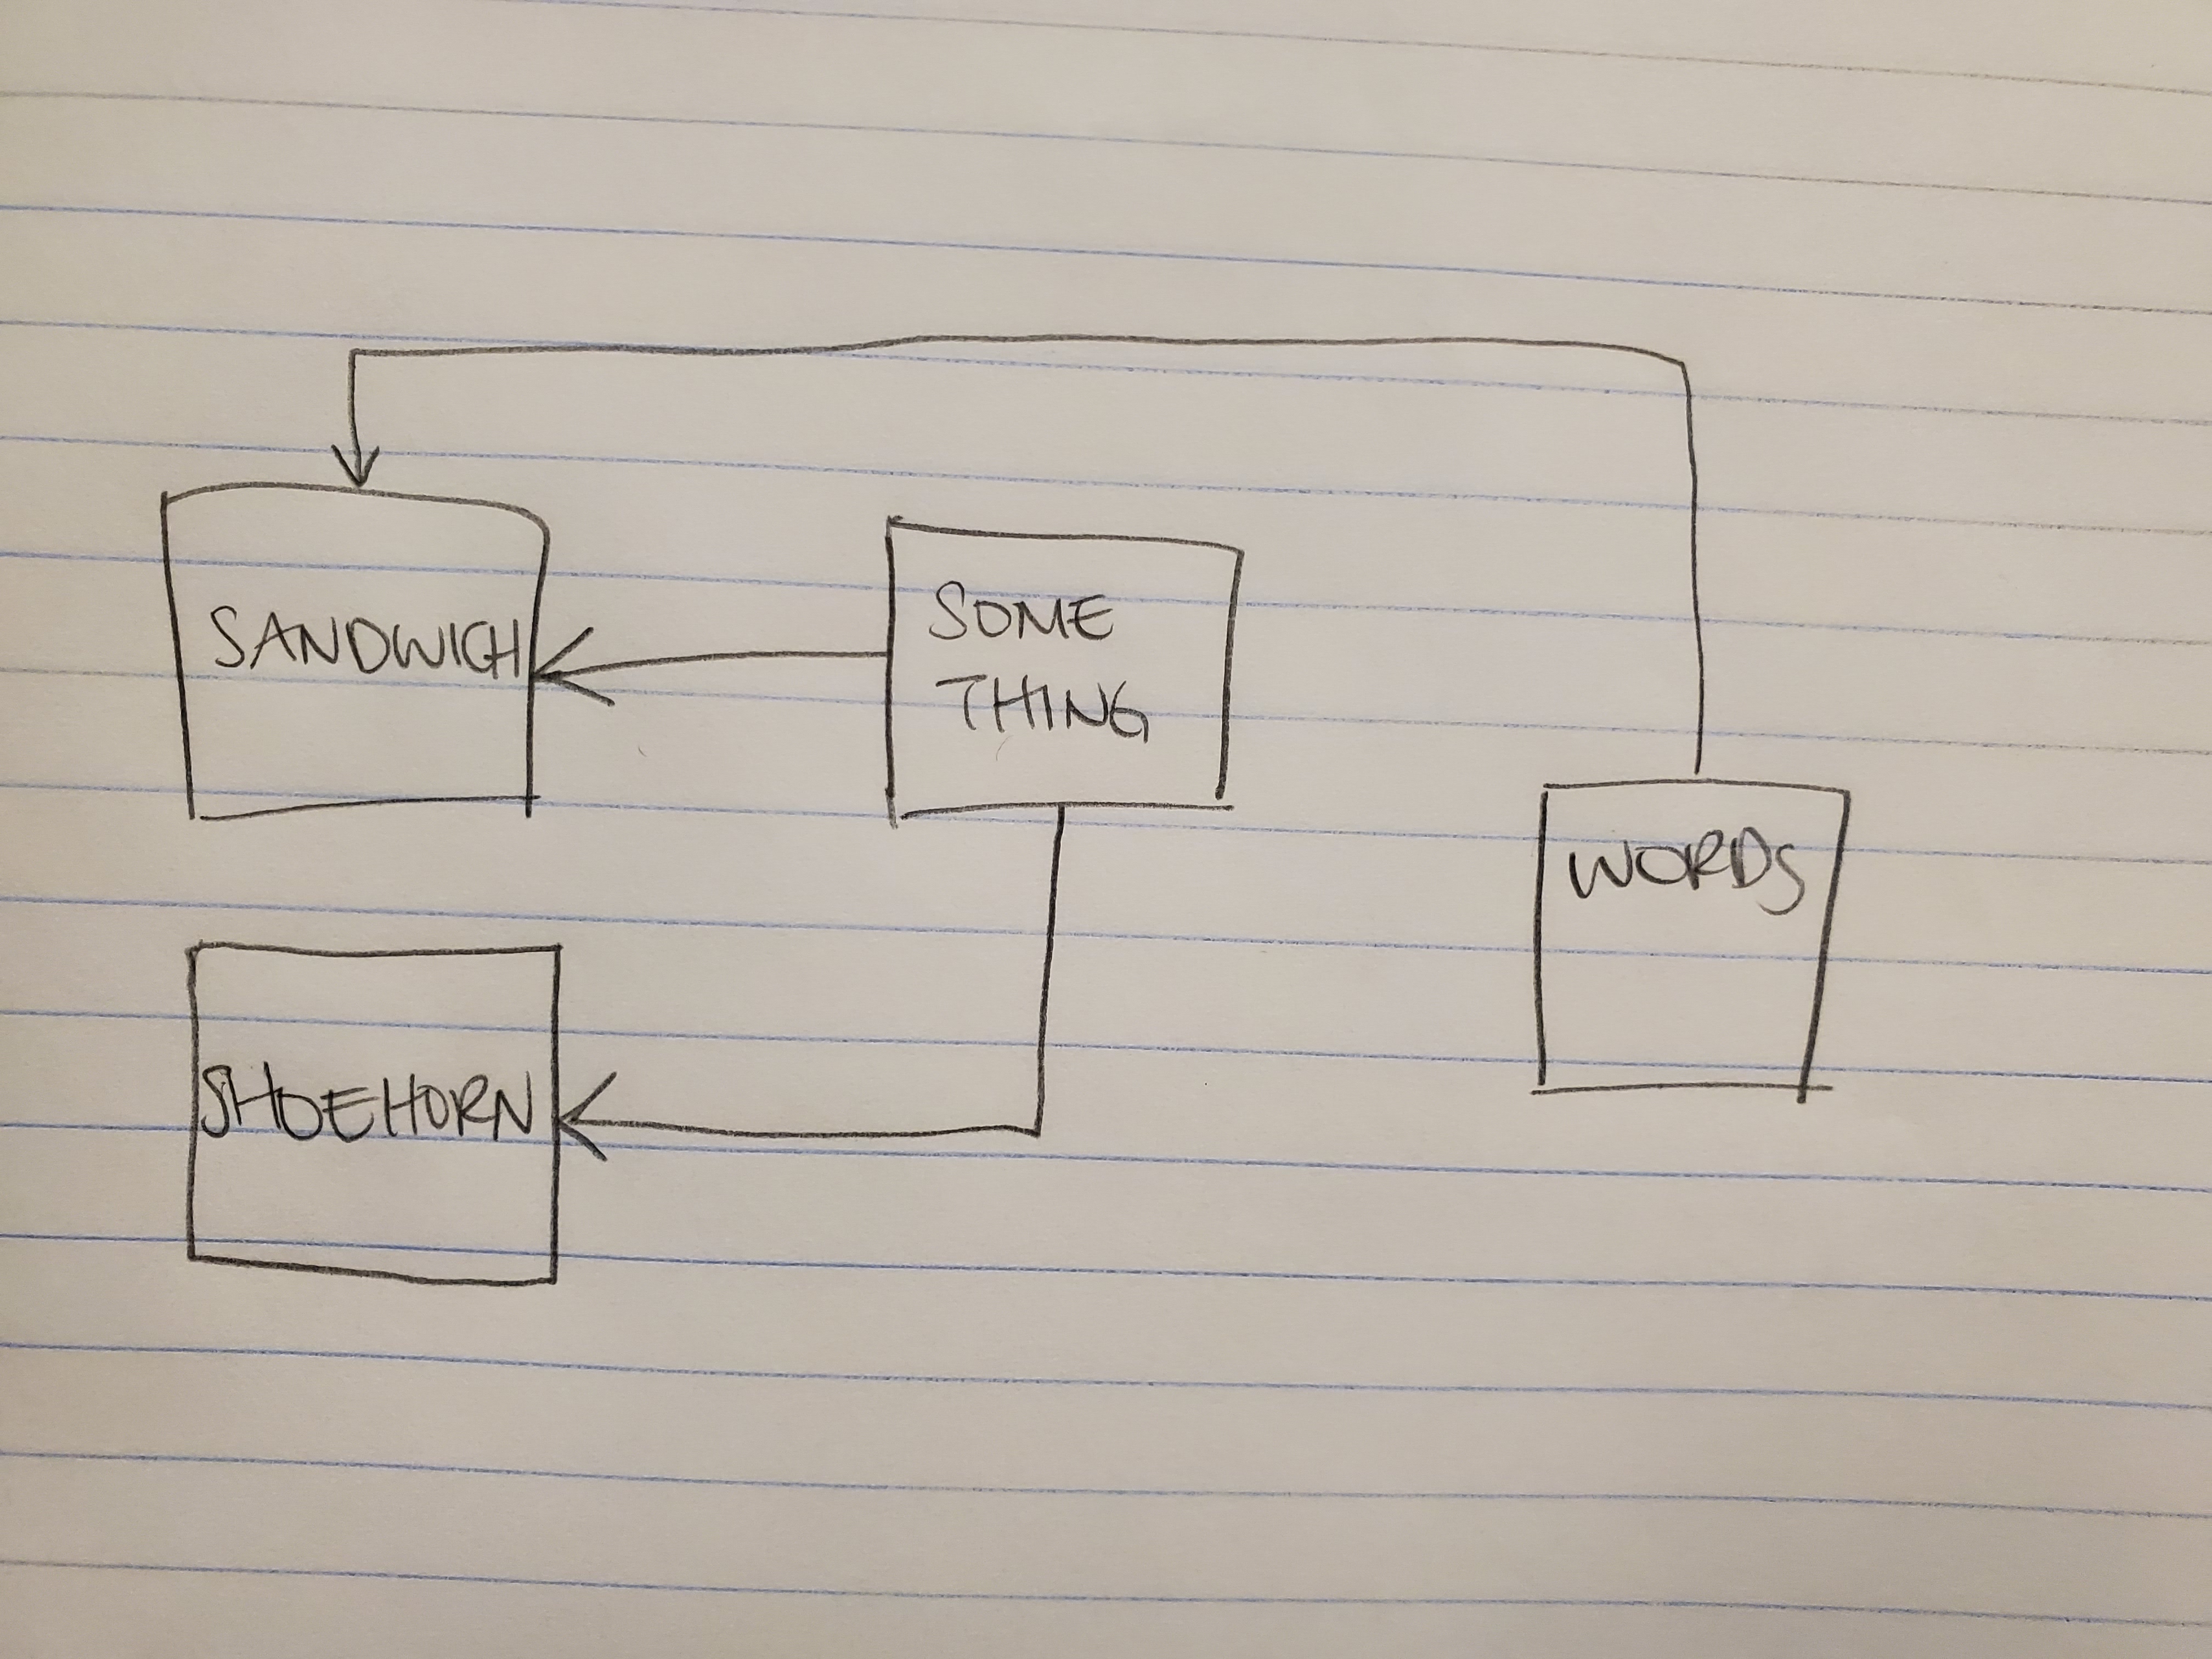 SANDWICH
SOME
THING
WORDS
SHOEHORN